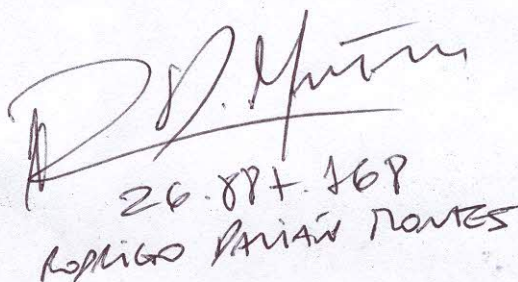 R D. Montes
26.887.168
RODRIGO DAMIÁN MONTES